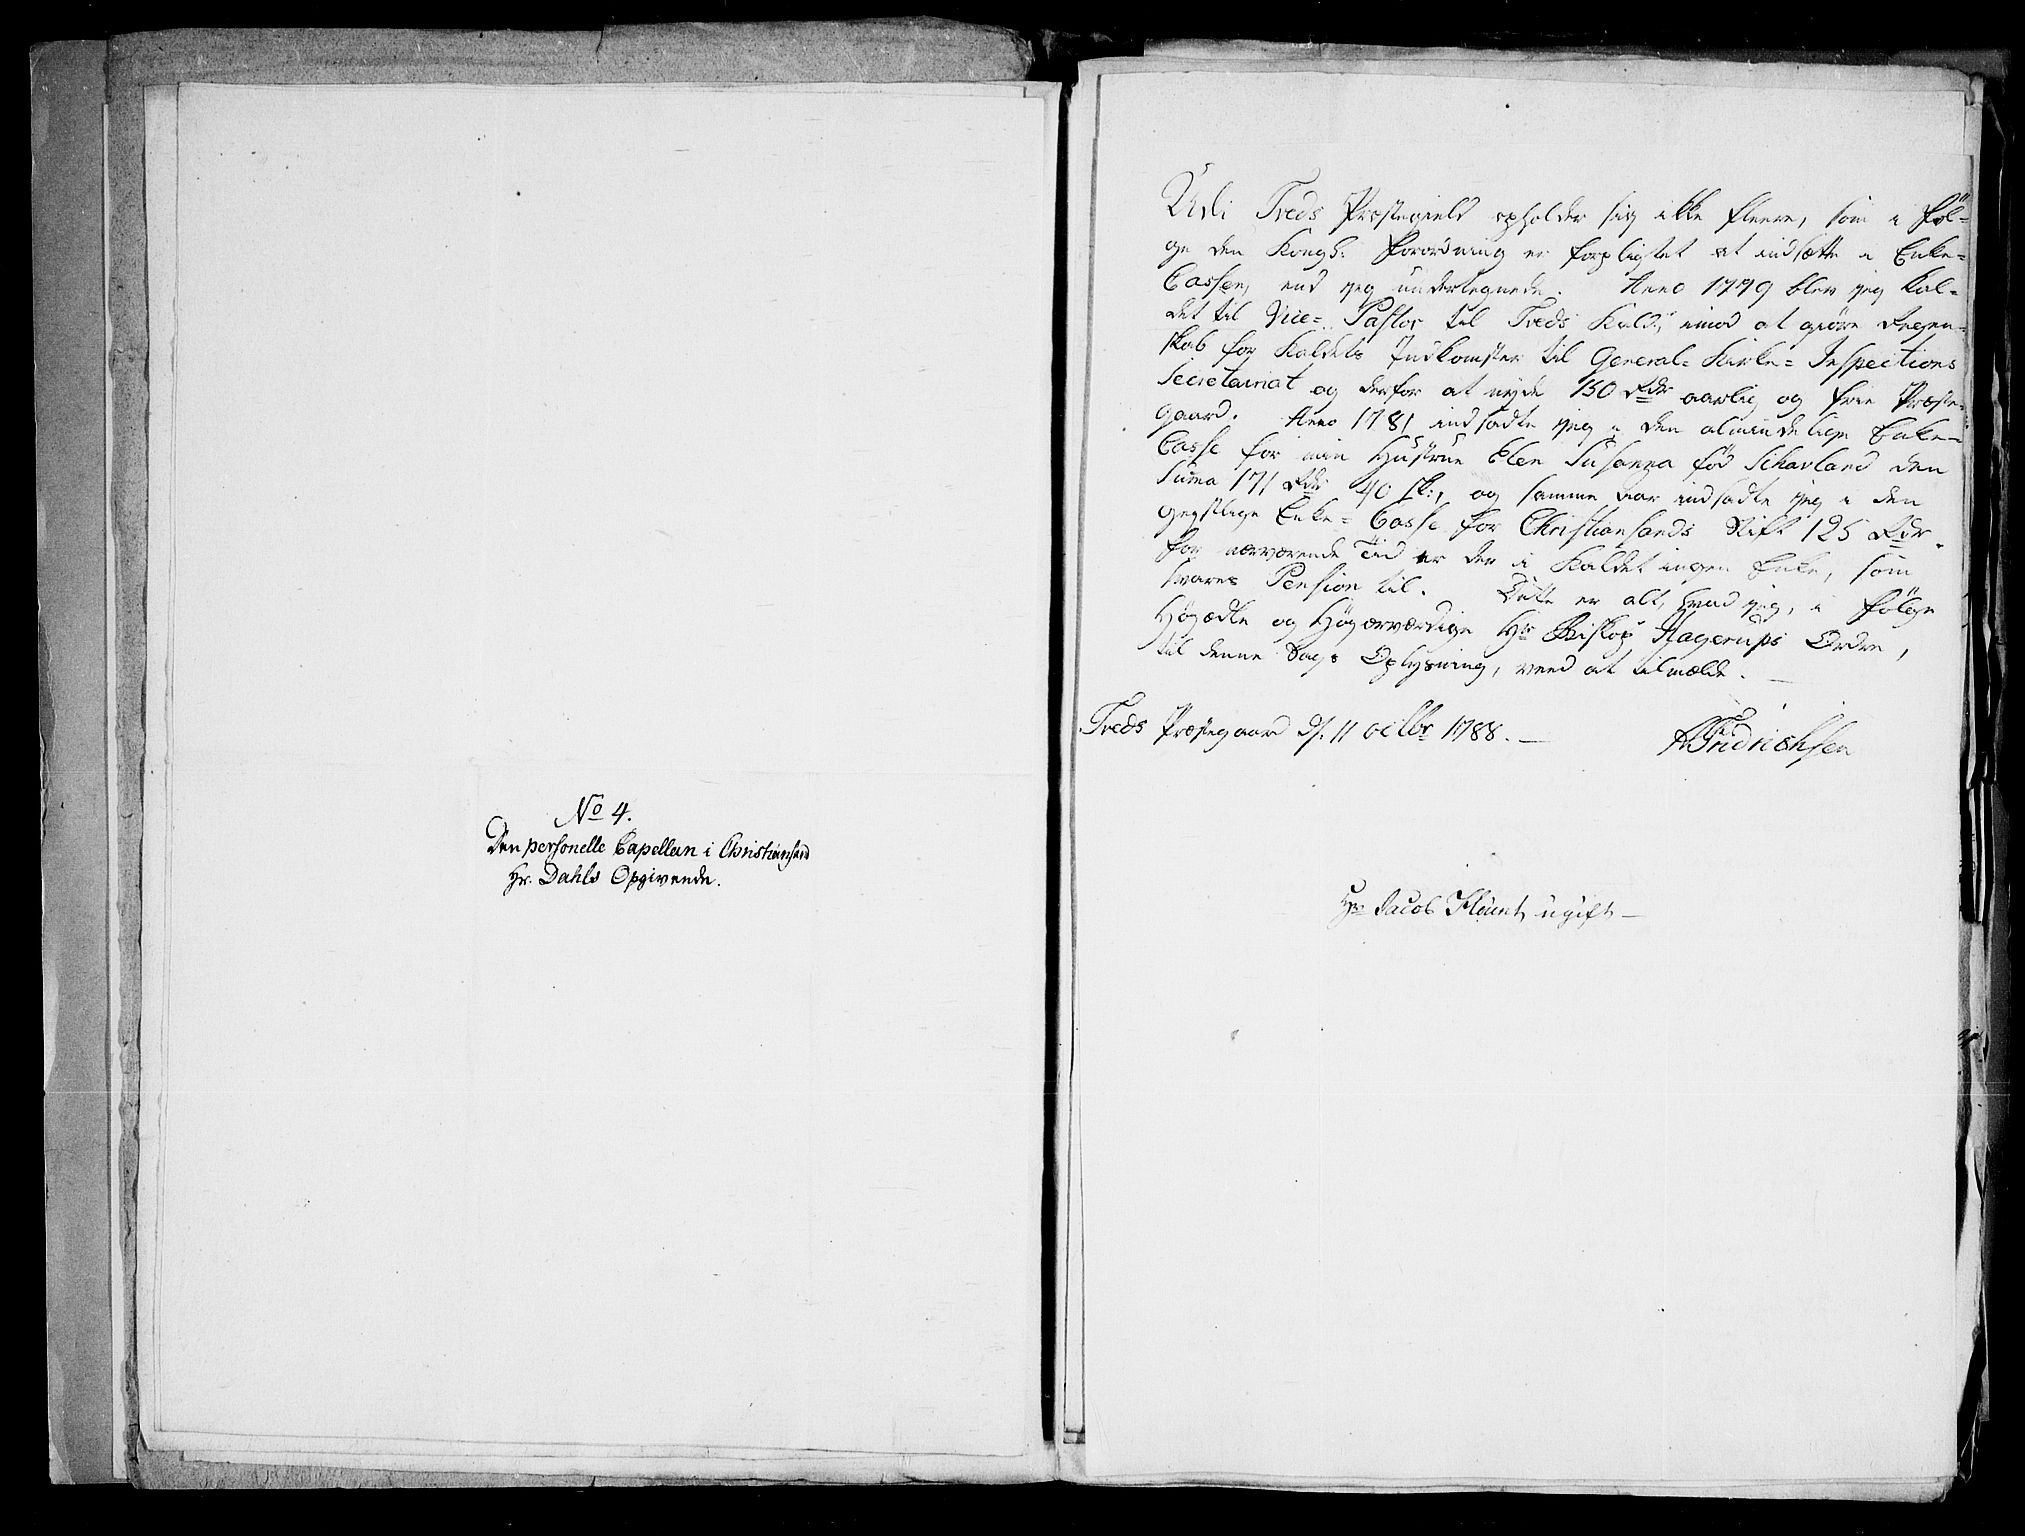 No 4.
Den personelle Capellan i Christiansand
Hr. Dahls Opgivende.
Udi Treds Præstegield opholder sig ikke fleere, som i Føl-
ge den Kongl: Forordning er forpligtet at indsætte i Enke-
Cassen, end jeg undertegnede. Anno 1779 blev jeg kal-
det til Vice-Pastor til Treds Kald, imod at giöre Regen-
skab for Kaldets Indkomster til General-Kirke-Inspections
Secretariat og derfor at nyde 150 Rdr aarlig og frie Præste-
gaard. Anno 1781 indsadte jeg i den almindelige Enke-
Casse for min Hustrue Elen Susanna fød Schavland den
Suma 171 Rdr 40 sk:, og samme Aar indsadte jeg i den
geystlige Enke-Casse for Christiansands Stift 125 Rdr.
For nærværende Tid er der i Kaldet ingen Enke, som
svares Pension til. Dette er alt, hvad jeg, i Følge
Højædle og Højærværdige Hr Biskop Hagerups Ordre,
til denne Sags Oplysning, veed at tilmælde.
Treds Præstegaard d. 11 octbr 1788.
Fridrichsen
Hr Jacob ugift